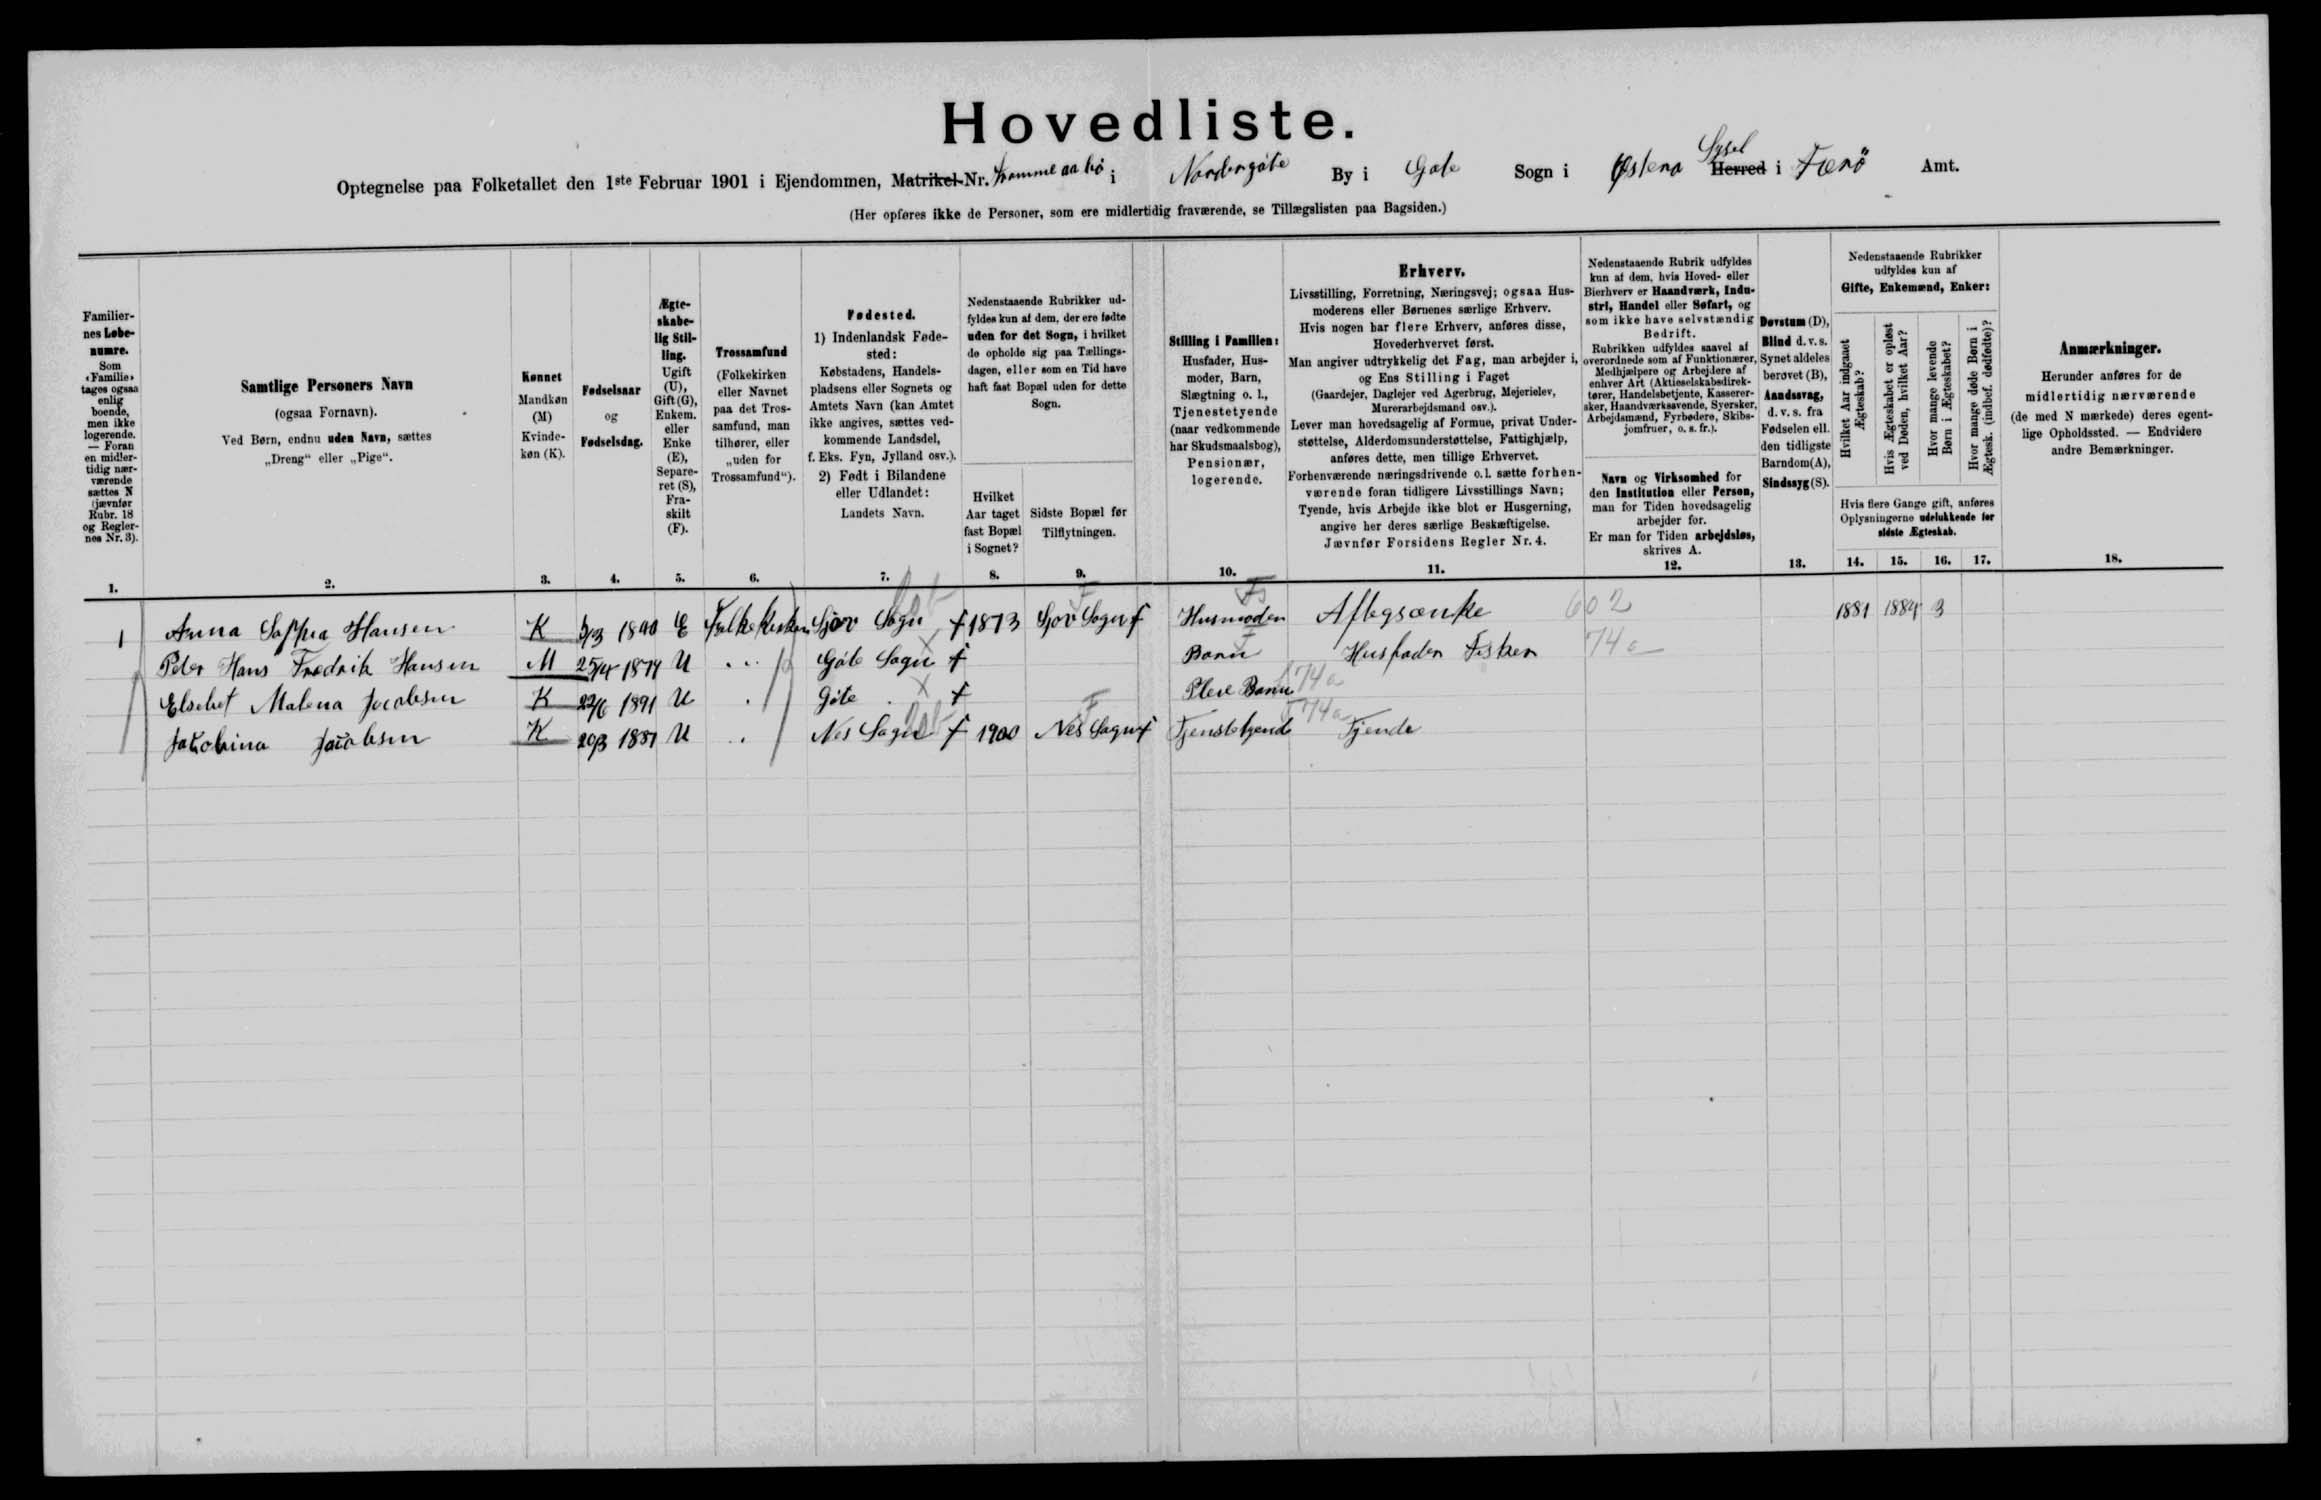 Hovedliste.
Optegnelse paa Folketallet den 1ste Februar 1901 i Ejendommen, Matrikel-Nr. i Nordregöte By i Gøte Sogn i Østerø Sysel Herred i Færö Amt.
(Her opføres ikke de Personer, som ere midlertidig fraværende, se Tillægslisten paa Bagsiden.)
Familier-
nes Løbe-
numre.
Som
‹Familie›
tages ogsaa
enlig
boende,
men ikke
logerende.
— Foran
en midler-
tidig nær-
værende
sættes N
(jævnfør
Rubr. 18
og Regler-
nes Nr. 3).
1.
Samtlige Personers Navn
(ogsaa Fornavn).
Ved Børn, endnu uden Navn, sættes
„Dreng“ eller „Pige“.
2.
Kønnet
Mandkøn
(M)
Kvinde-
køn (K).
3.
Fødselsaar
og
Fødselsdag.
4.
Ægte-
skabe-
lig Stil-
ling.
Ugift
(U),
Gift (G),
Enkem.
eller
Enke
(E),
Separe-
ret (S),
Fra-
skilt
(F).
5.
Trossamfund
(Folkekirken
eller Navnet
paa det Tros-
samfund, man
tilhører, eller
„uden for
Trossamfund“).
6.
Fødested.
1) Indenlandsk Føde-
sted:
Købstadens, Handels-
pladsens eller Sognets og
Amtets Navn (kan Amtet
ikke angives, sættes ved-
kommende Landsdel,
f. Eks. Fyn, Jylland osv.).
2) Født i Bilandene
eller Udlandet:
Landets Navn.
7.
Nedenstaaende Rubrikker ud-
fyldes kun af dem, der ere fødte
uden for det Sogn, i hvilket
de opholde sig paa Tællings-
dagen, eller som en Tid have
haft fast Bopæl uden for dette
Sogn.
Hvilket
Aar taget
fast Bopæl
i Sognet?
8.
Sidste Bopæl før
Tilflytningen.
9.
Stilling i Familien:
Husfader, Hus-
moder, Barn,
Slægtning o. l.,
Tjenestetyende
(naar vedkommende
har Skudsmaalsbog),
Pensionær,
logerende.
10.
Erhverv.
Livsstilling, Forretning, Næringsvej; ogsaa Hus-
moderens eller Børnenes særlige Erhverv.
Hvis nogen har flere Erhverv, anføres disse,
Hovederhvervet først.
Man angiver udtrykkelig det Fag, man arbejder i,
og Ens Stilling i Faget
(Gaardejer, Daglejer ved Agerbrug, Mejerielev,
Murerarbejdsmand osv.).
Lever man hovedsagelig af Formue, privat Under-
støttelse, Alderdomsunderstøttelse, Fattighjælp,
anføres dette, men tillige Erhvervet.
Forhenværende næringsdrivende o. l. sætte forhen-
værende foran tidligere Livsstillings Navn;
Tyende, hvis Arbejde ikke blot er Husgerning,
angive her deres særlige Beskæftigelse.
Jævnfør Forsidens Regler Nr. 4.
11.
Nedenstaaende Rubrik udfyldes
kun af dem, hvis Hoved- eller
Bierhverv er Haandværk, Indu-
stri, Handel eller Søfart, og
som ikke have selvstændig
Bedrift.
Rubrikken udfyldes saavel af
overordnede som af Funktionærer,
Medhjælpere og Arbejdere af
enhver Art (Aktieselskabsdirek-
tører, Handelsbetjente, Kasserer-
sker, Haandværkssvende, Syersker,
Arbejdsmænd, Fyrbødere, Skibs-
jomfruer, o. s. fr.).
Navn og Virksomhed for
den Institution eller Person,
man for Tiden hovedsagelig
arbejder for.
Er man for Tiden arbejdsløs,
skrives A.
12.
Døvstum (D),
Blind d. v. s.
Synet aldeles
berøvet (B),
Aandssvag,
d. v. s. fra
Fødselen ell.
den tidligste
Barndom (A),
Sindssyg (S).
13.
Nedenstaaende Rubrikker
udfyldes kun af
Gifte, Enkemænd, Enker:
Hvilket Aar indgaaet
Ægteskab?
Hvis Ægteskabet er opløst
ved Døden, hvilket Aar?
Hvor mange levende
Børn i Ægteskabet?
Hvor mange døde Børn i
Ægtesk. (indbef. dødfødte)?
Hvis flere Gange gift, anføres
Oplysningerne udelukkende for
sidste Ægteskab.
14. 15. 16. 17.
Anmærkninger.
Herunder anføres for de
midlertidig nærværende
(de med N mærkede) deres egent-
lige Opholdssted. — Endvidere
andre Bemærkninger.
18.
1 Anna Soffia Hansen K 5/3 1840 E Folkekirken Sjov Sogn f 1873 Sjov Sogn f Husmoder Aftegsænke 602 1881 1884 3
Peter Hans Fredrik Hansen M 25/4 1874 U " Göte Sogn f Barn Husfader Fisker 74a
Elsebet Malena Jacobsen K 22/6 1891 U " Göte f Pleie Barn 74a
Jakobina Jacobsen K 20/3 1881 U " Nes Sogn f 1900 Nes Sogn f Tjenstetyende 74a Tjende